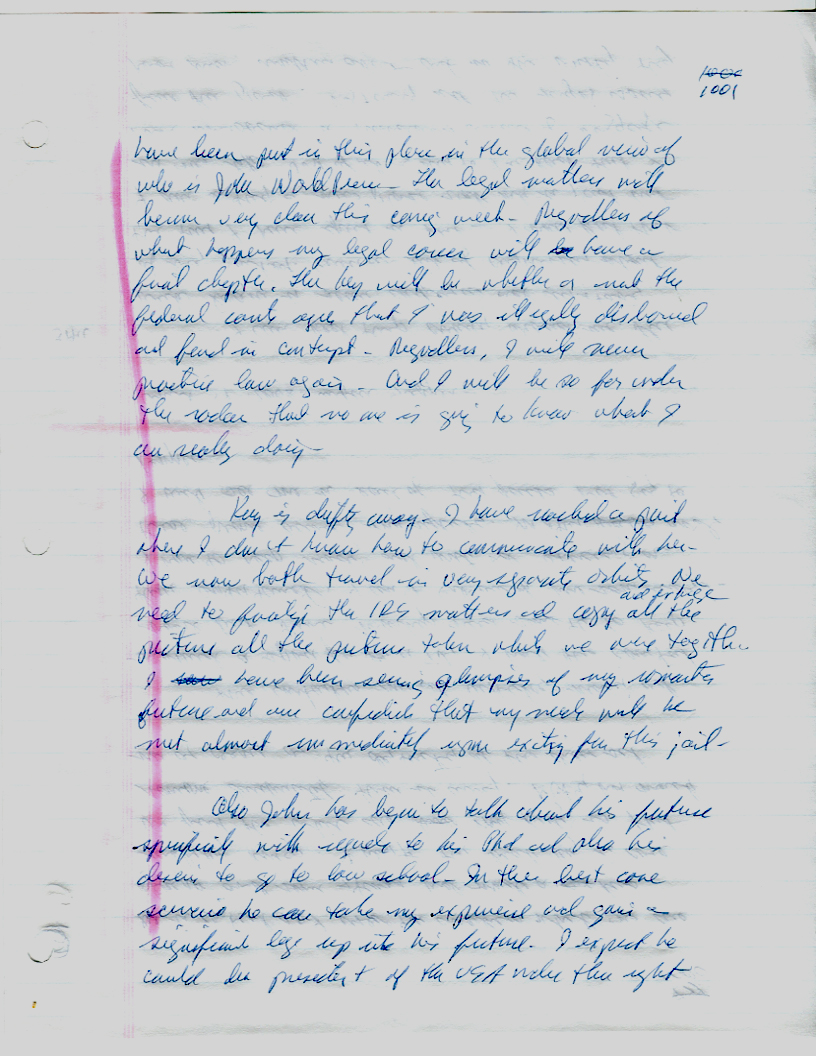 1001
have been put in this place, in the global view of
who is John WorldPeace - The legal matters will
become very clear this coming week - Regardless of
what happens my legal career will have a
final chapter. The key will be whether or not the
federal courts agree that I was illegally disbarred
and found in contempt - Regardless, I will never
practice law again - And I will be so far under
the radar that no one is going to know what I
am really doing -
Kay is drifting away - I have reached a point
where I don't know how to communicate with her -
We now both travel in very separate orbits. We
need to finalize the IRS matters and copy all the
pictures all the pictures taken while we were together
I have been seeing glimpses of my romantic
future and am confident that my needs will be
met almost immediately upon exiting from this jail -
Also John has begun to talk about his future
specifically with regards to his Phd and also his
desire to go to law school - In the best case
scenario he can take my experience and gain a
significant leg up into his future. I expect he
could be president of the USA under the right